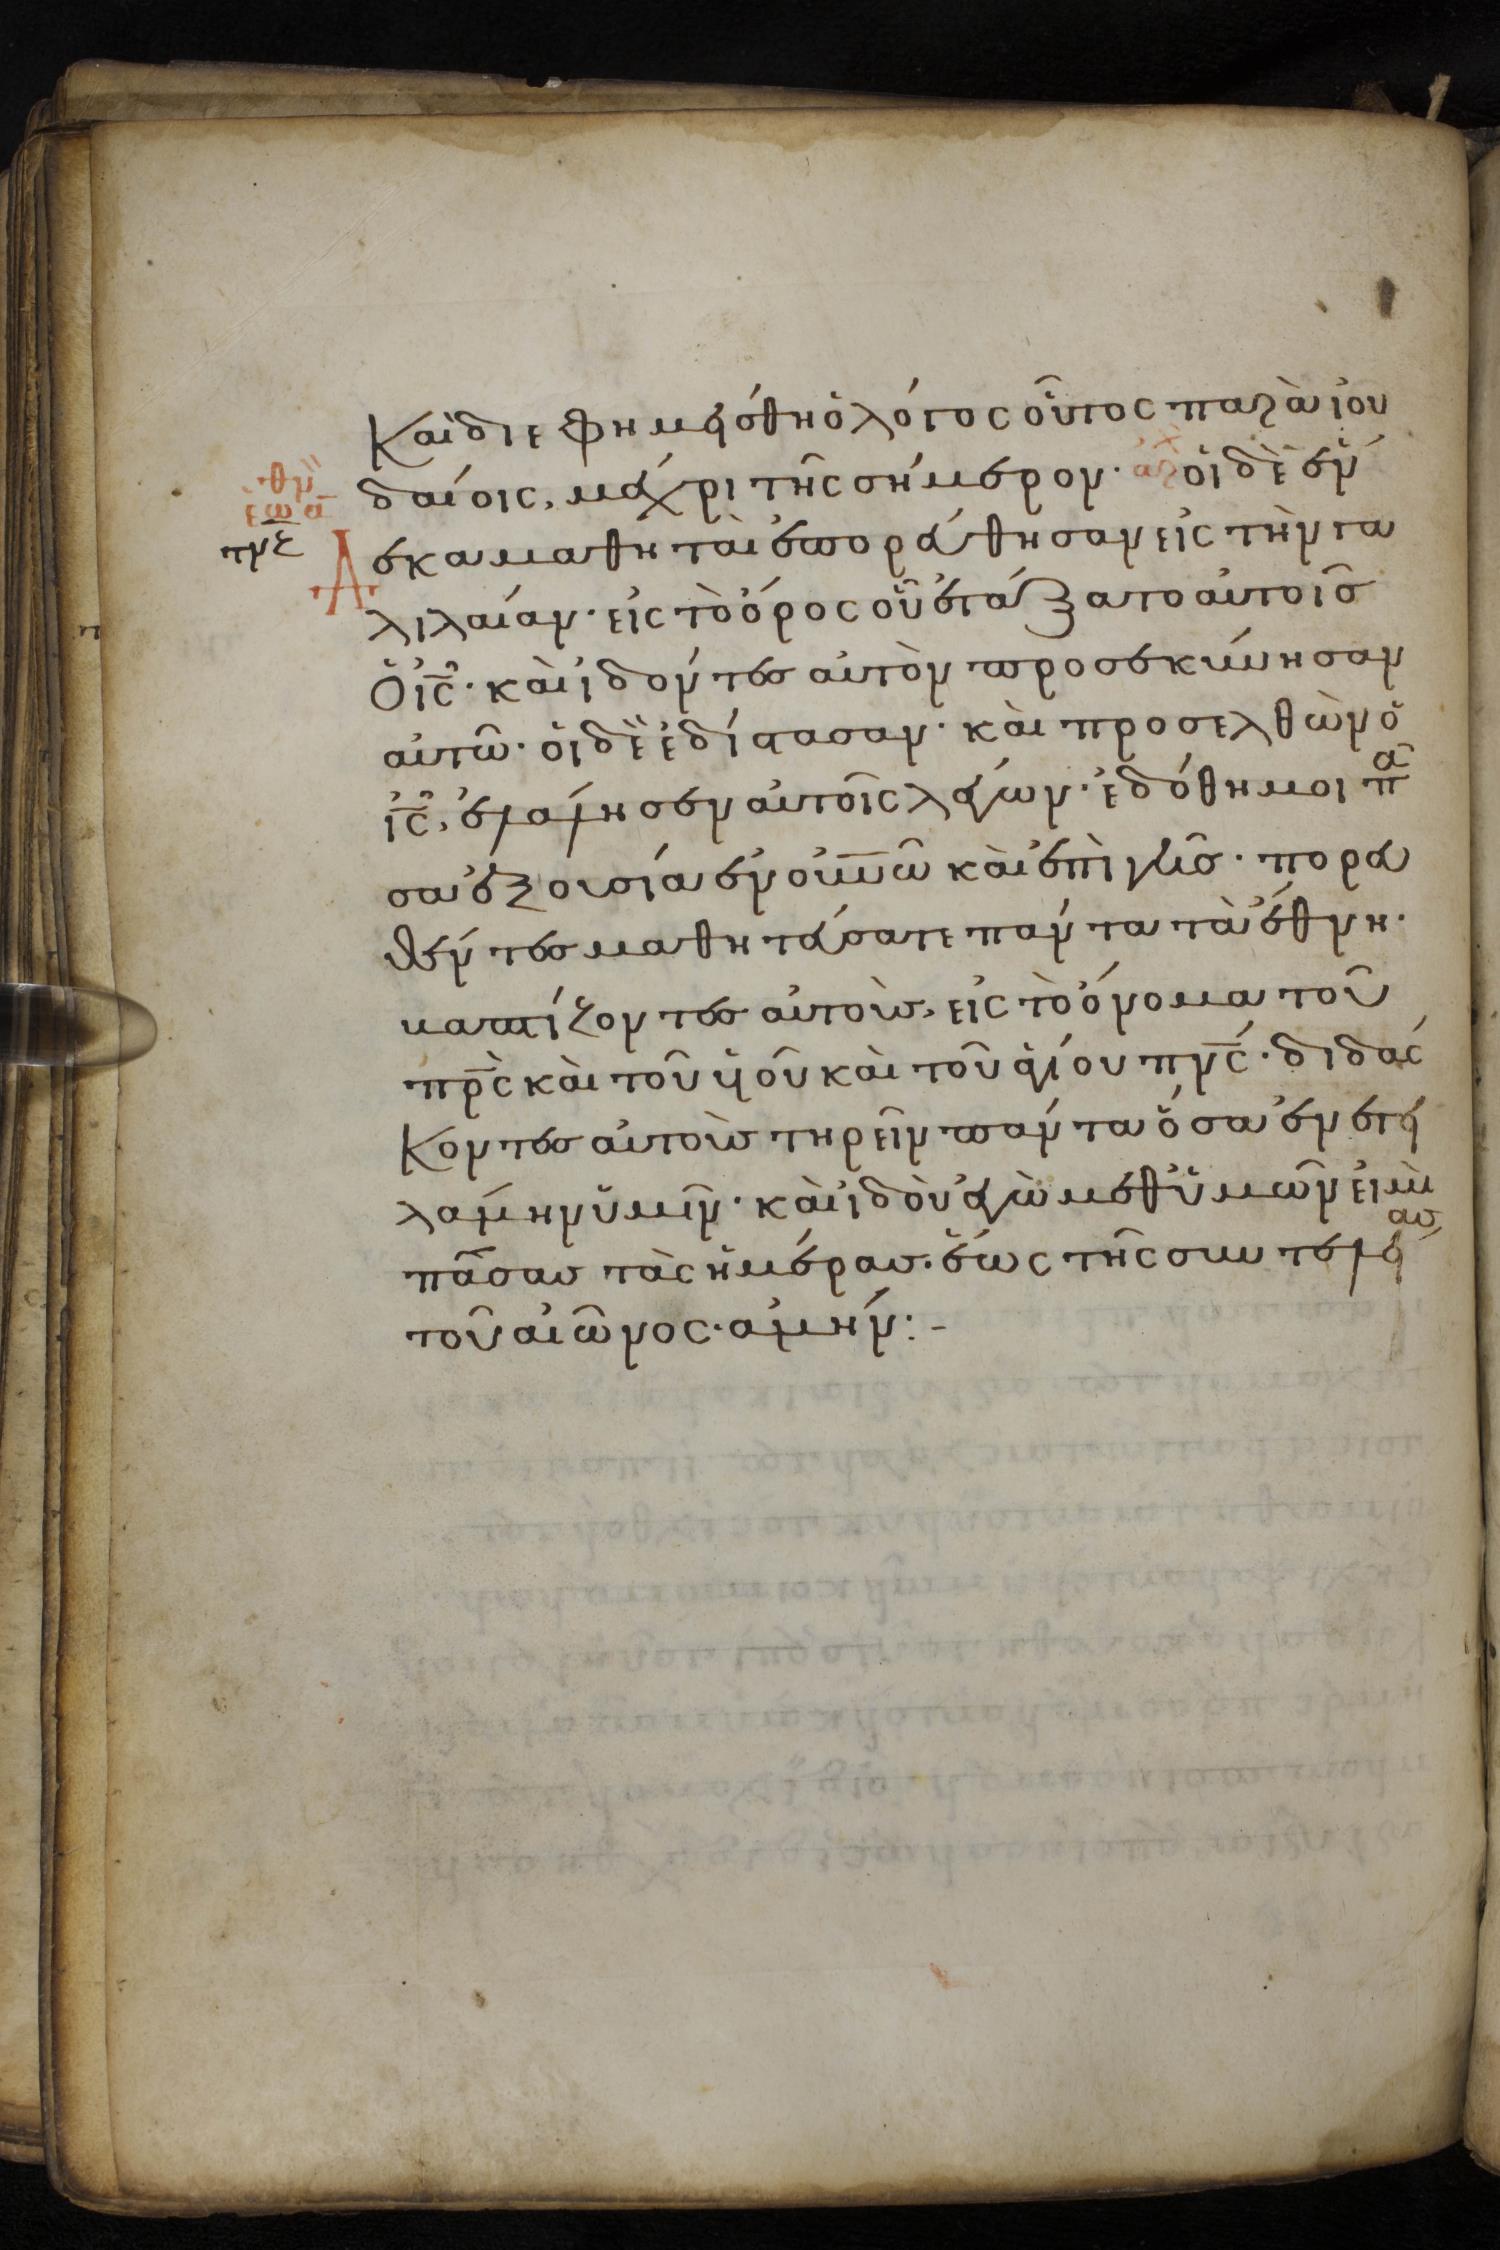 Καὶ διεφημίσθη ὁ λόγος οὗτος παρὰ ἰου
δαίοις, μέχρι τῆς σήμερον· ἀρχ οἱ δὲ ἕν
δεκα μαθηταὶ ἐπορεύθησαν εἰς τὴν γα
λιλαίαν· εἰς τὸ ὄρος οὗ ἐτάξατο αὐτοῖς
Ὁ ις· καὶ ἰδόντες αὐτὸν προσεκύνησαν
αὐτῶ· οἱ δὲ ἐδίστασαν· καὶ προσελθὼν ὁ
ις, ἐλάλησεν αὐτοῖς λέγων· ἐδόθη μοι πᾶ
σα ἐξουσία ἐν οὐνῶ καὶ ἐπὶ γῆς· πορευ
θέντες μαθητεύσατε πάντα τὰ ἔθνη·
βαπτίζοντες αὐτοὺς, εἰς τὸ ὄνομα τοῦ
πρς καὶ τοῦ υἱοῦ καὶ τοῦ ἁγίου πνς· διδάσ
Κοντες αὐτοὺς τηρεῖν πάντα ὅσα ἐνετει
λάμην ὑμῖν· καὶ ἰδοὺ ἐγὼ μεθ' ὑμῶν εἰμὶ
πάσας τὰς ἡμέρας· ἕως τῆς συντελείας
τοῦ αἰῶνος· ἀμήν:-